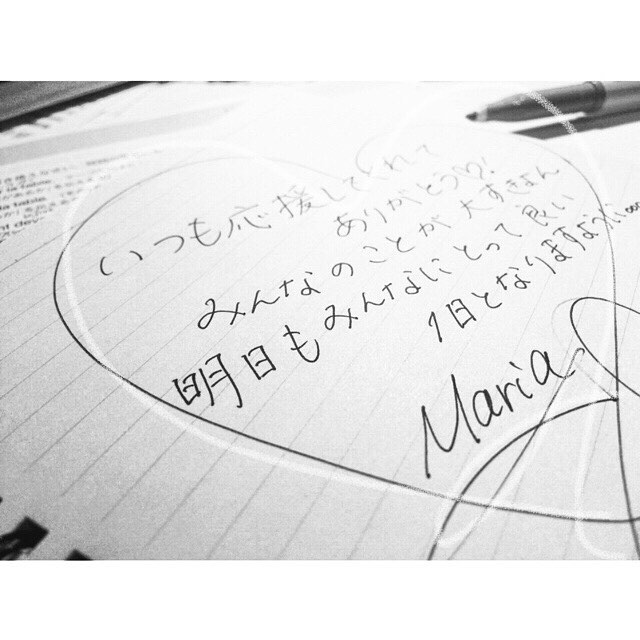 いつも応援してくれて
ありがとう♡!
みんなのことが大すきまん
明日もみんなにとって良い
1日となりますように...
Maria
la table